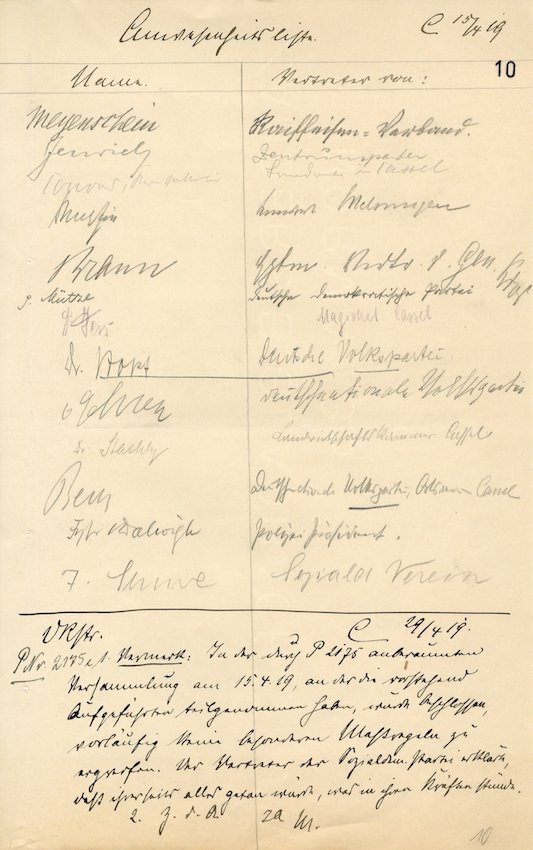 Anwesenheitsliste. C 15/4 19
10
Name. Vertreter von:
Meyenschein Raiffeisen=Verband.
Henrich Zentrumspartei
Cassel
Landrat Melsungen
Braun Hptm. Vertr. d. Gen.
G. Mütze deutsche demokratische Partei
Magistrat Cassel
Dr. Hopf Deutsche Volkspartei.
deutschnationale Volkspartei
Landwirtschaftskammer Cassel
Dr. Stachly
Deutschnationale Volkspartei, Cassel
Frhr. v Dalwigk Polizeipräsident.
F. Soziald Verein
C 29/4 19.
P.Nr. 2175 1. Vermerk: In der durch P 2175 anberaumten
Versammlung am 15.4.19, an der die vorstehend
Aufgeführten teilgenommen haben, wurde beschlossen,
vorläufig keine besonderen Maßregeln zu
ergreifen. Der Vertreter der Sozialdem. Partei erklärte,
daß ihrerseits alles getan würde, was in ihren Kräften stünde.
2. Z. d. A.
10